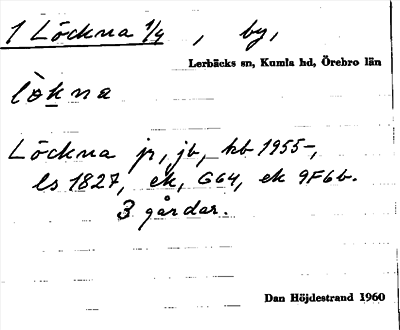 1 Löckna 1/4, by,
Lerbäcks sn, Kumla hd, Örebro län
lòkna
Löckna jr, jb, kb 1955-,
ls 1827, ek, G64, ek 9F6b.
3 gårdar.
Dan Höjdestrand 1960